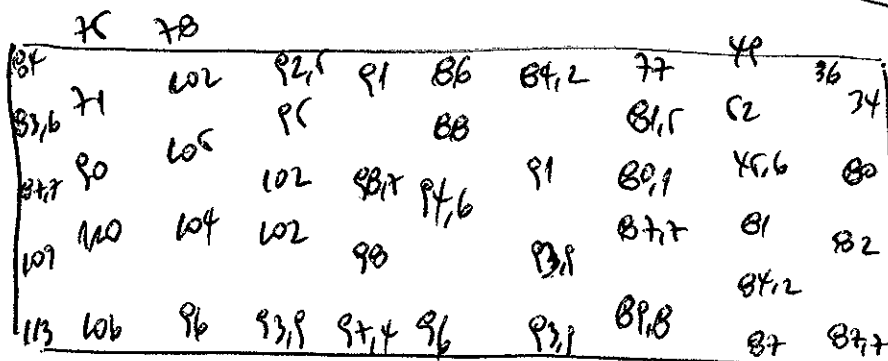 75 78
84 102 92,5 91 86 84,2 77 49 36
83,6 71 95 88 81,5 52 34
87,7 90 105 102 98,7 94,6 91 80,9 45,6 80
109 110 104 102 98 93,9 87,7 81 82
84,2
113 106 96 93,9 97,4 96 93,9 89,8 87 87,7